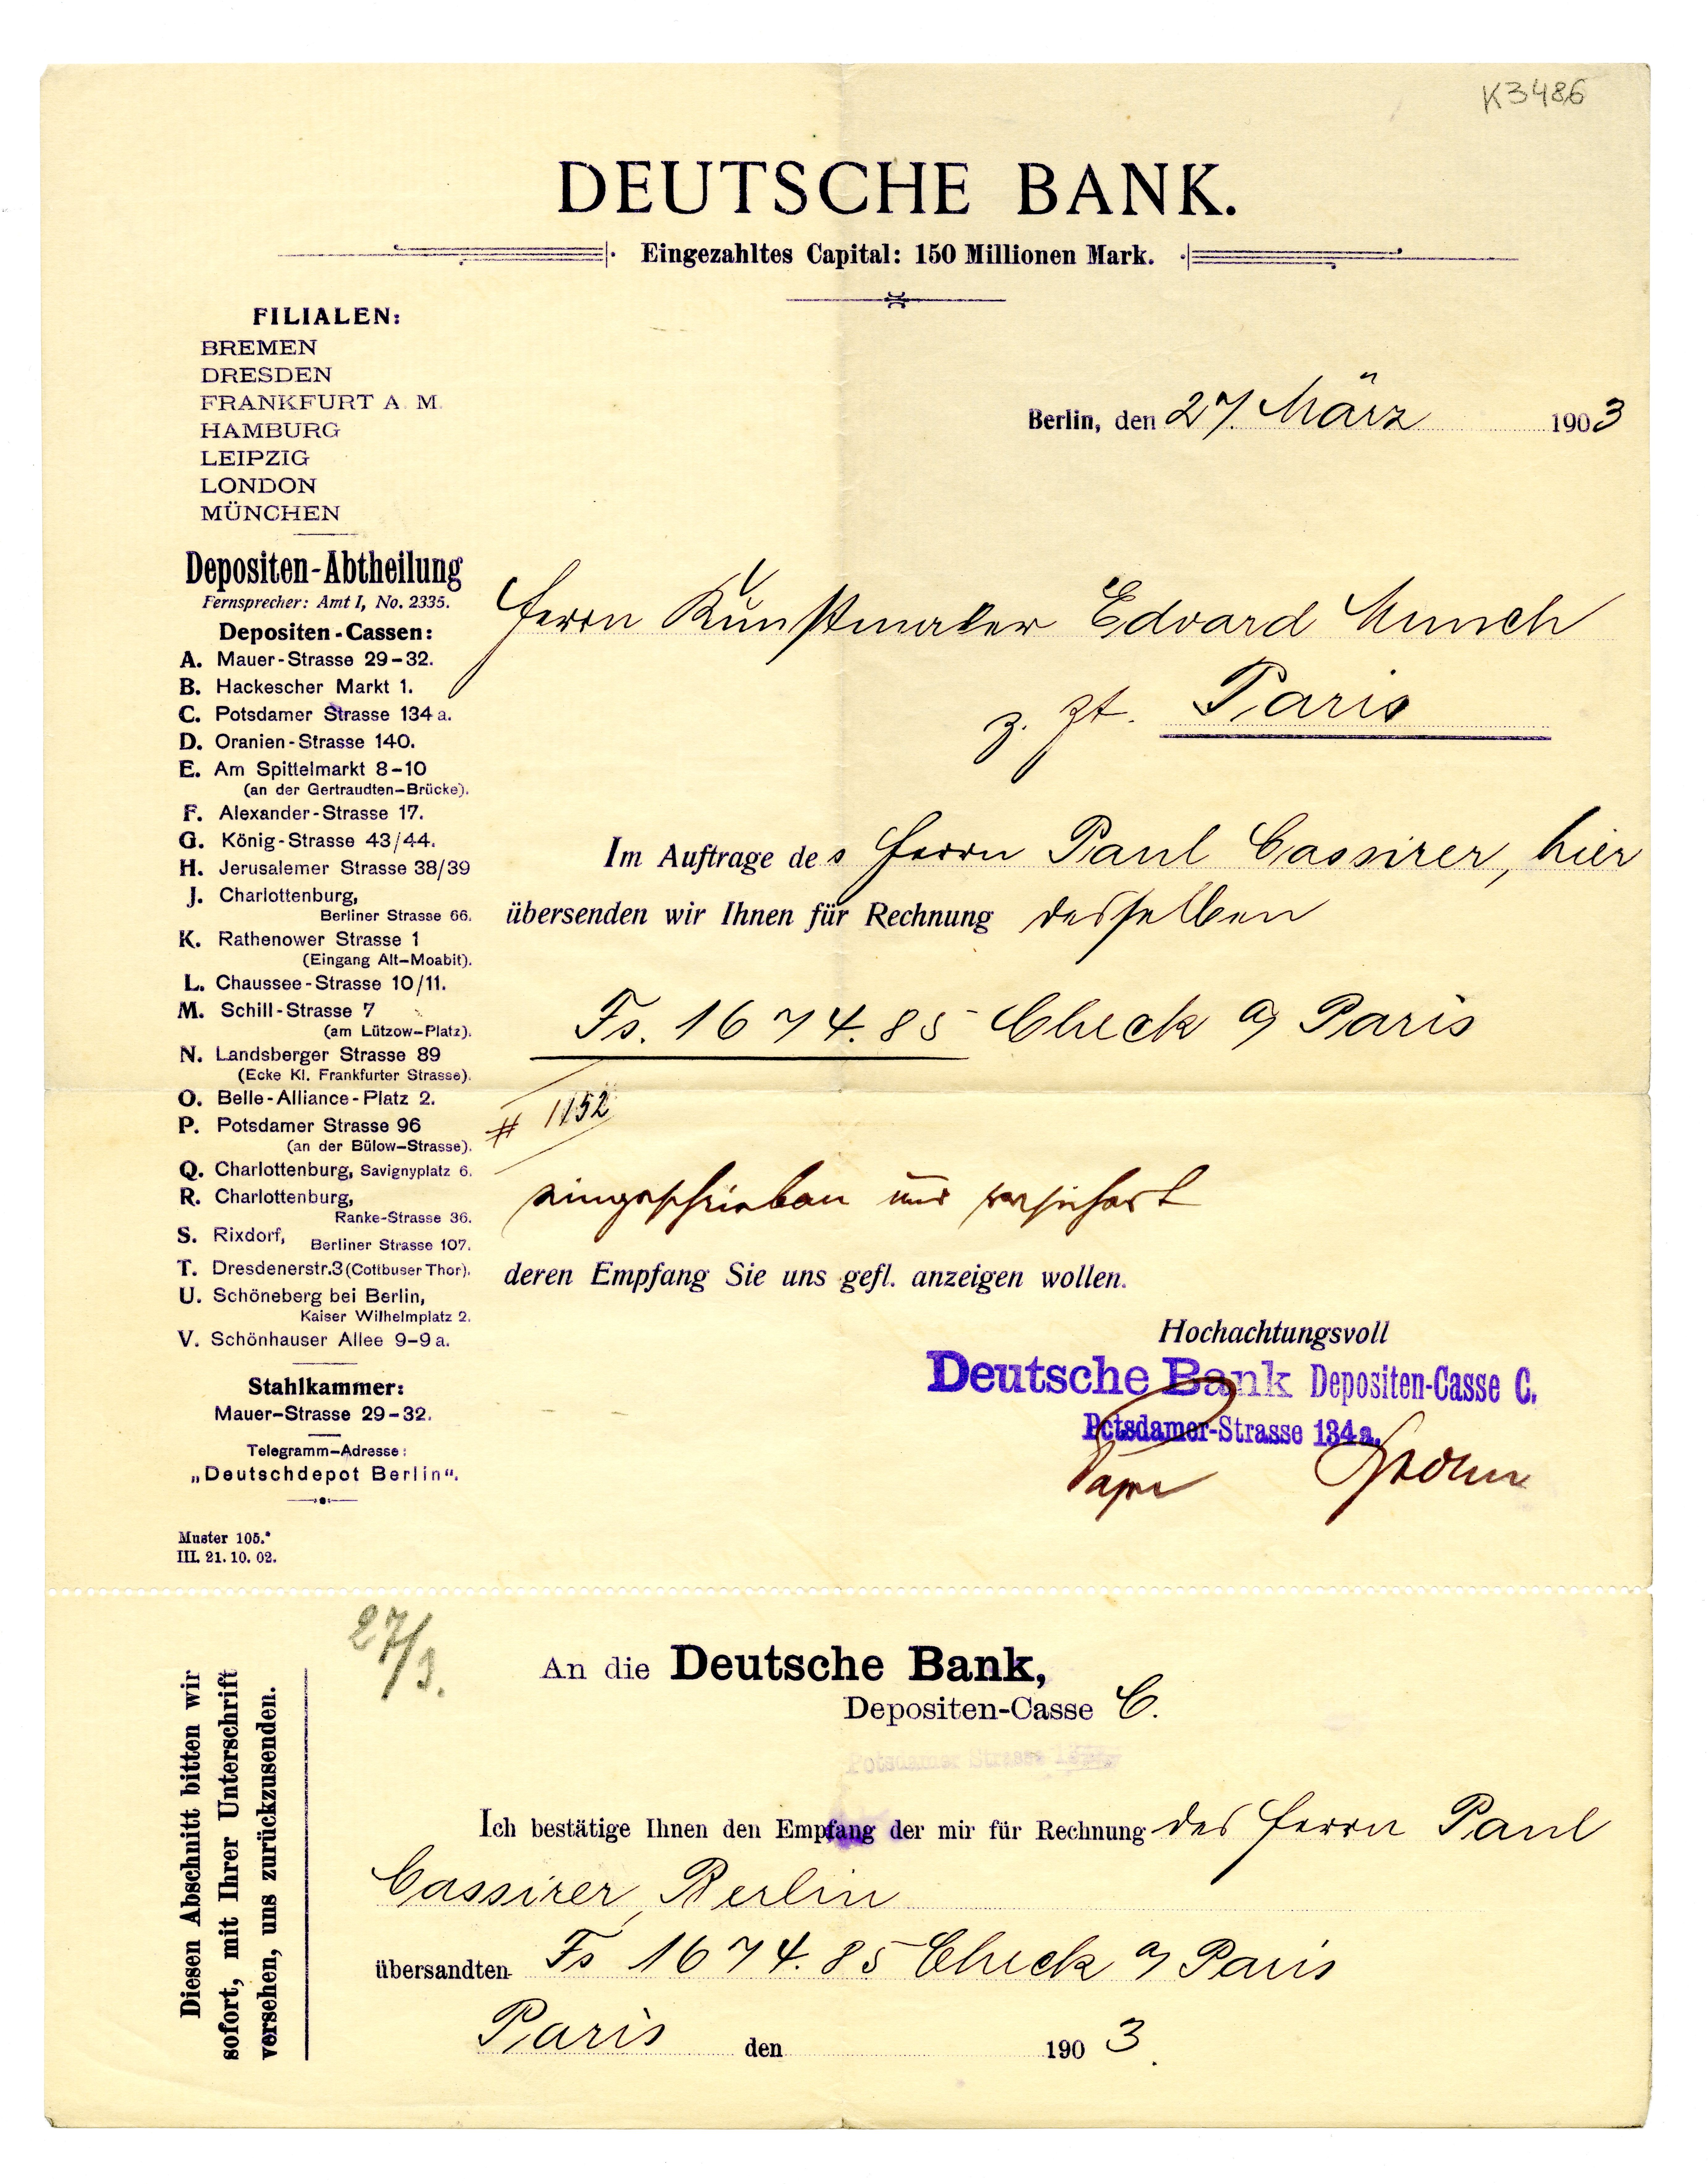 K3486
DEUTSCHE BANK.
Eingezahltes Capital: 150 Millionen Mark.
FILIALEN:
BREMEN
DRESDEN
FRANKFURT A. M.
HAMBURG
LEIPZIG
LONDON
MÜNCHEN
Depositen-Abtheilung
Fernsprecher: Amt I, No. 2335.
Depositen-Cassen:
A. Mauer-Strasse 29-32.
B. Hackescher Markt 1.
C. Potsdamer Strasse 134a.
D. Oranien-Strasse 140.
E. Am Spittelmarkt 8-10
(an der Gertraudten-Brücke).
F. Alexander-Strasse 17.
G. König-Strasse 43/44.
H. Jerusalemer Strasse 38/39
J. Charlottenburg,
Berliner Strasse 66.
K. Rathenower Strasse 1
(Eingang Alt-Moabit).
L. Chaussee-Strasse 10/11.
M. Schill-Strasse 7
(am Lützow-Platz).
N. Landsberger Strasse 89
(Ecke Kl. Frankfurter Strasse).
O. Belle-Alliance-Platz 2.
P. Potsdamer Strasse 96
(an der Bülow-Strasse).
Q. Charlottenburg, Savignyplatz 6.
R. Charlottenburg,
Ranke-Strasse 36.
S. Rixdorf,
Berliner Strasse 107.
T. Dresdenerstr.3 (Cottbuser Thor).
U. Schöneberg bei Berlin,
Kaiser Wilhelmplatz 2.
V. Schönhauser Allee 9-9a.
Stahlkammer:
Mauer-Strasse 29-32.
Telegramm-Adresse:
„Deutschdepot Berlin“.
Muster 105.*
III. 21. 10. 02.
Berlin, den 27. März 1903
Herrn Kunstmaler Edvard Munch
z. Zt. Paris
Im Auftrage des Herrn Paul Cassirer, hier
übersenden wir Ihnen für Rechnung desselben
Fs. 1674.85 Check a/ Paris
# 1152
eingeschrieben und versichert
deren Empfang Sie uns gefl. anzeigen wollen.
Hochachtungsvoll
Deutsche Bank Depositen-Casse C.
Potsdamer-Strasse 134a.
27/3.
Diesen Abschnitt bitten wir
sofort, mit Ihrer Unterschrift
versehen, uns zurückzusenden.
An die Deutsche Bank,
Depositen-Casse C.
Potsdamer Strasse
Ich bestätige Ihnen den Empfang der mir für Rechnung des Herrn Paul
Cassirer, Berlin
übersandten Fs 1674.85 Check a/ Paris
Paris den 1903.